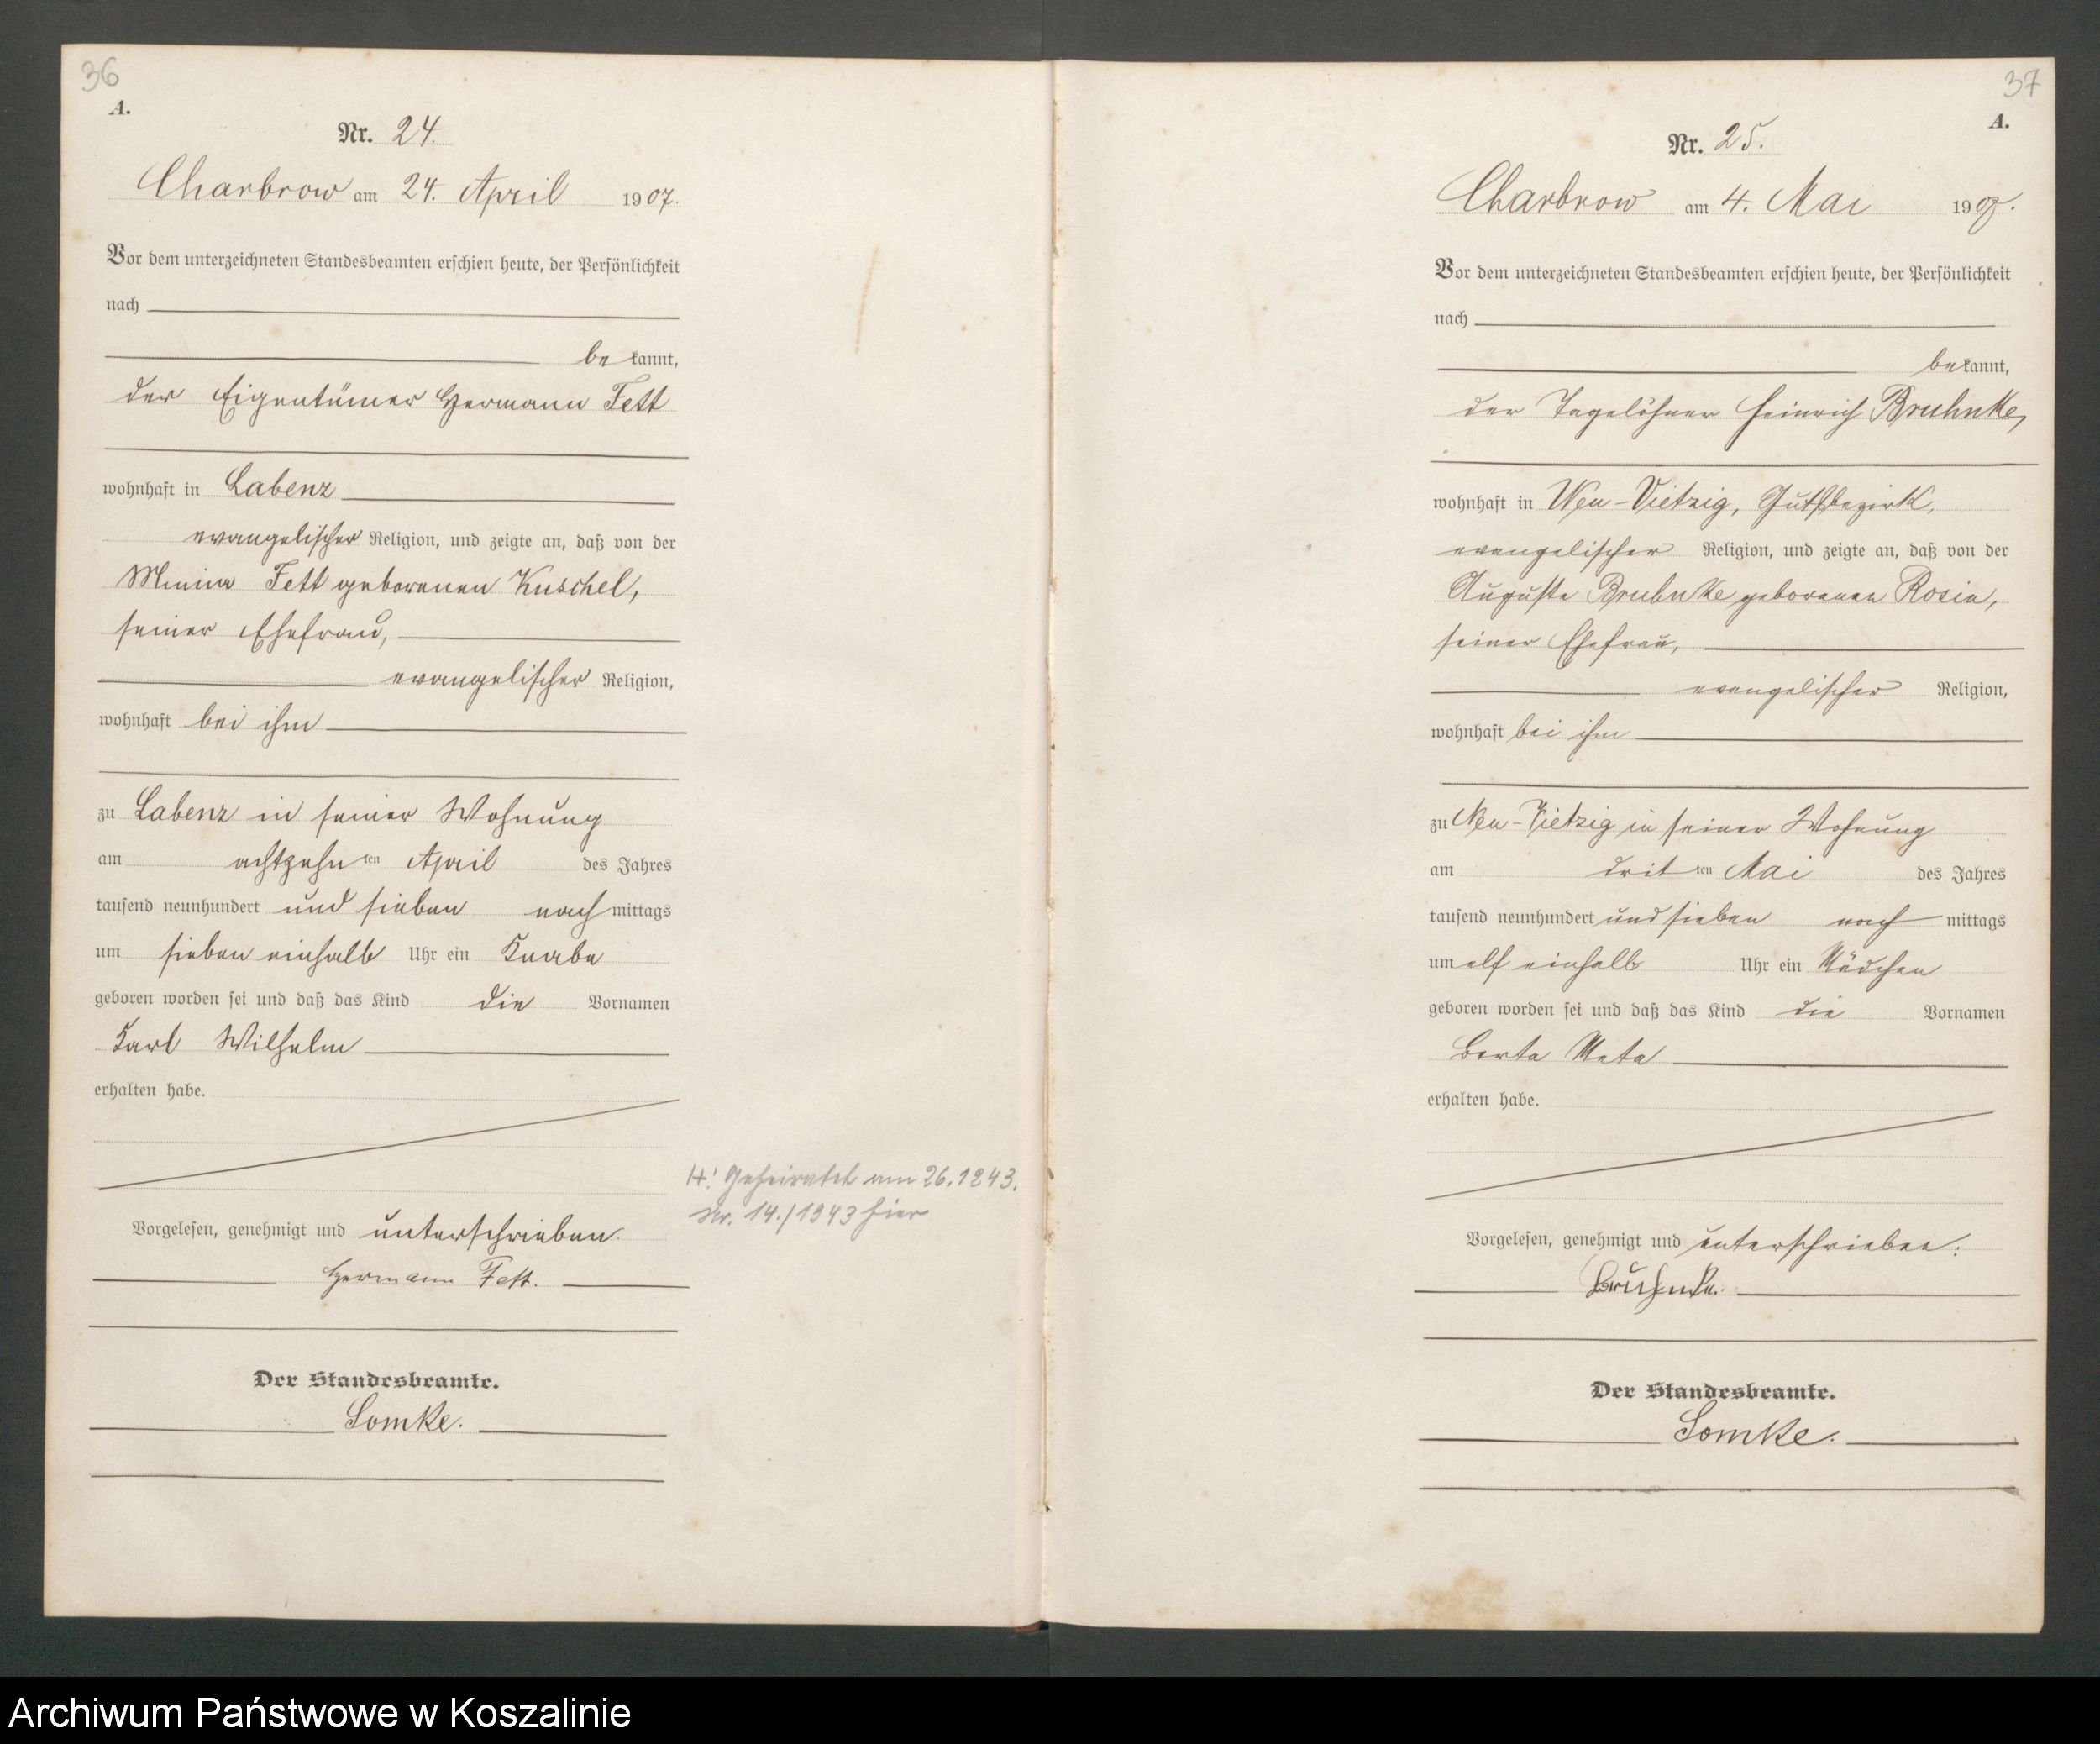 36
A.
Nr. 24.
Charbrow am 24. April 1907.
Vor dem unterzeichneten Standesbeamten erschien heute, der Persönlichkeit
nach
bekannt,
der Eigentümer Hermann Fett
wohnhaft in Labenz
evangelischer Religion, und zeigte an, daß von der
Minna Fett geborenen Kuschel,
seiner Ehefrau,
evangelischer Religion,
wohnhaft bei ihm
zu Labenz in seiner Wohnung
am achtzehnten April des Jahres
tausend neunhundert und sieben nachmittags
um sieben einhalb Uhr ein Knabe
geboren worden sei und daß das Kind die Vornamen
Karl Wilhelm
erhalten habe.
Vorgelesen, genehmigt und unterschrieben.
Hermann Fett.
Der Standesbeamte.
Lomke.
H! Geheiratet am 26.1243.
Nr. 14./1943 hier
37
A.
Nr. 25.
Charbrow am 4. Mai 1907.
Vor dem unterzeichneten Standesbeamten erschien heute, der Persönlichkeit
nach
bekannt,
der Tagelöhner Heinrich Bruhnke,
wohnhaft in Neu-Vietzig, Gutsbezirk,
evangelischer Religion, und zeigte an, daß von der
Auguste Bruhnke geborenen Rosin,
seiner Ehefrau,
evangelischer Religion,
wohnhaft bei ihm
zu Neu-Vietzig in seiner Wohnung
am dritten Mai des Jahres
tausend neunhundert und sieben nachmittags
um elf einhalb Uhr ein Mädchen
geboren worden sei und daß das Kind die Vornamen
Berta Meta
erhalten habe.
Vorgelesen, genehmigt und unterschrieben:
Bruhnke.
Der Standesbeamte.
Lomke.
Archiwum Państwowe w Koszalinie